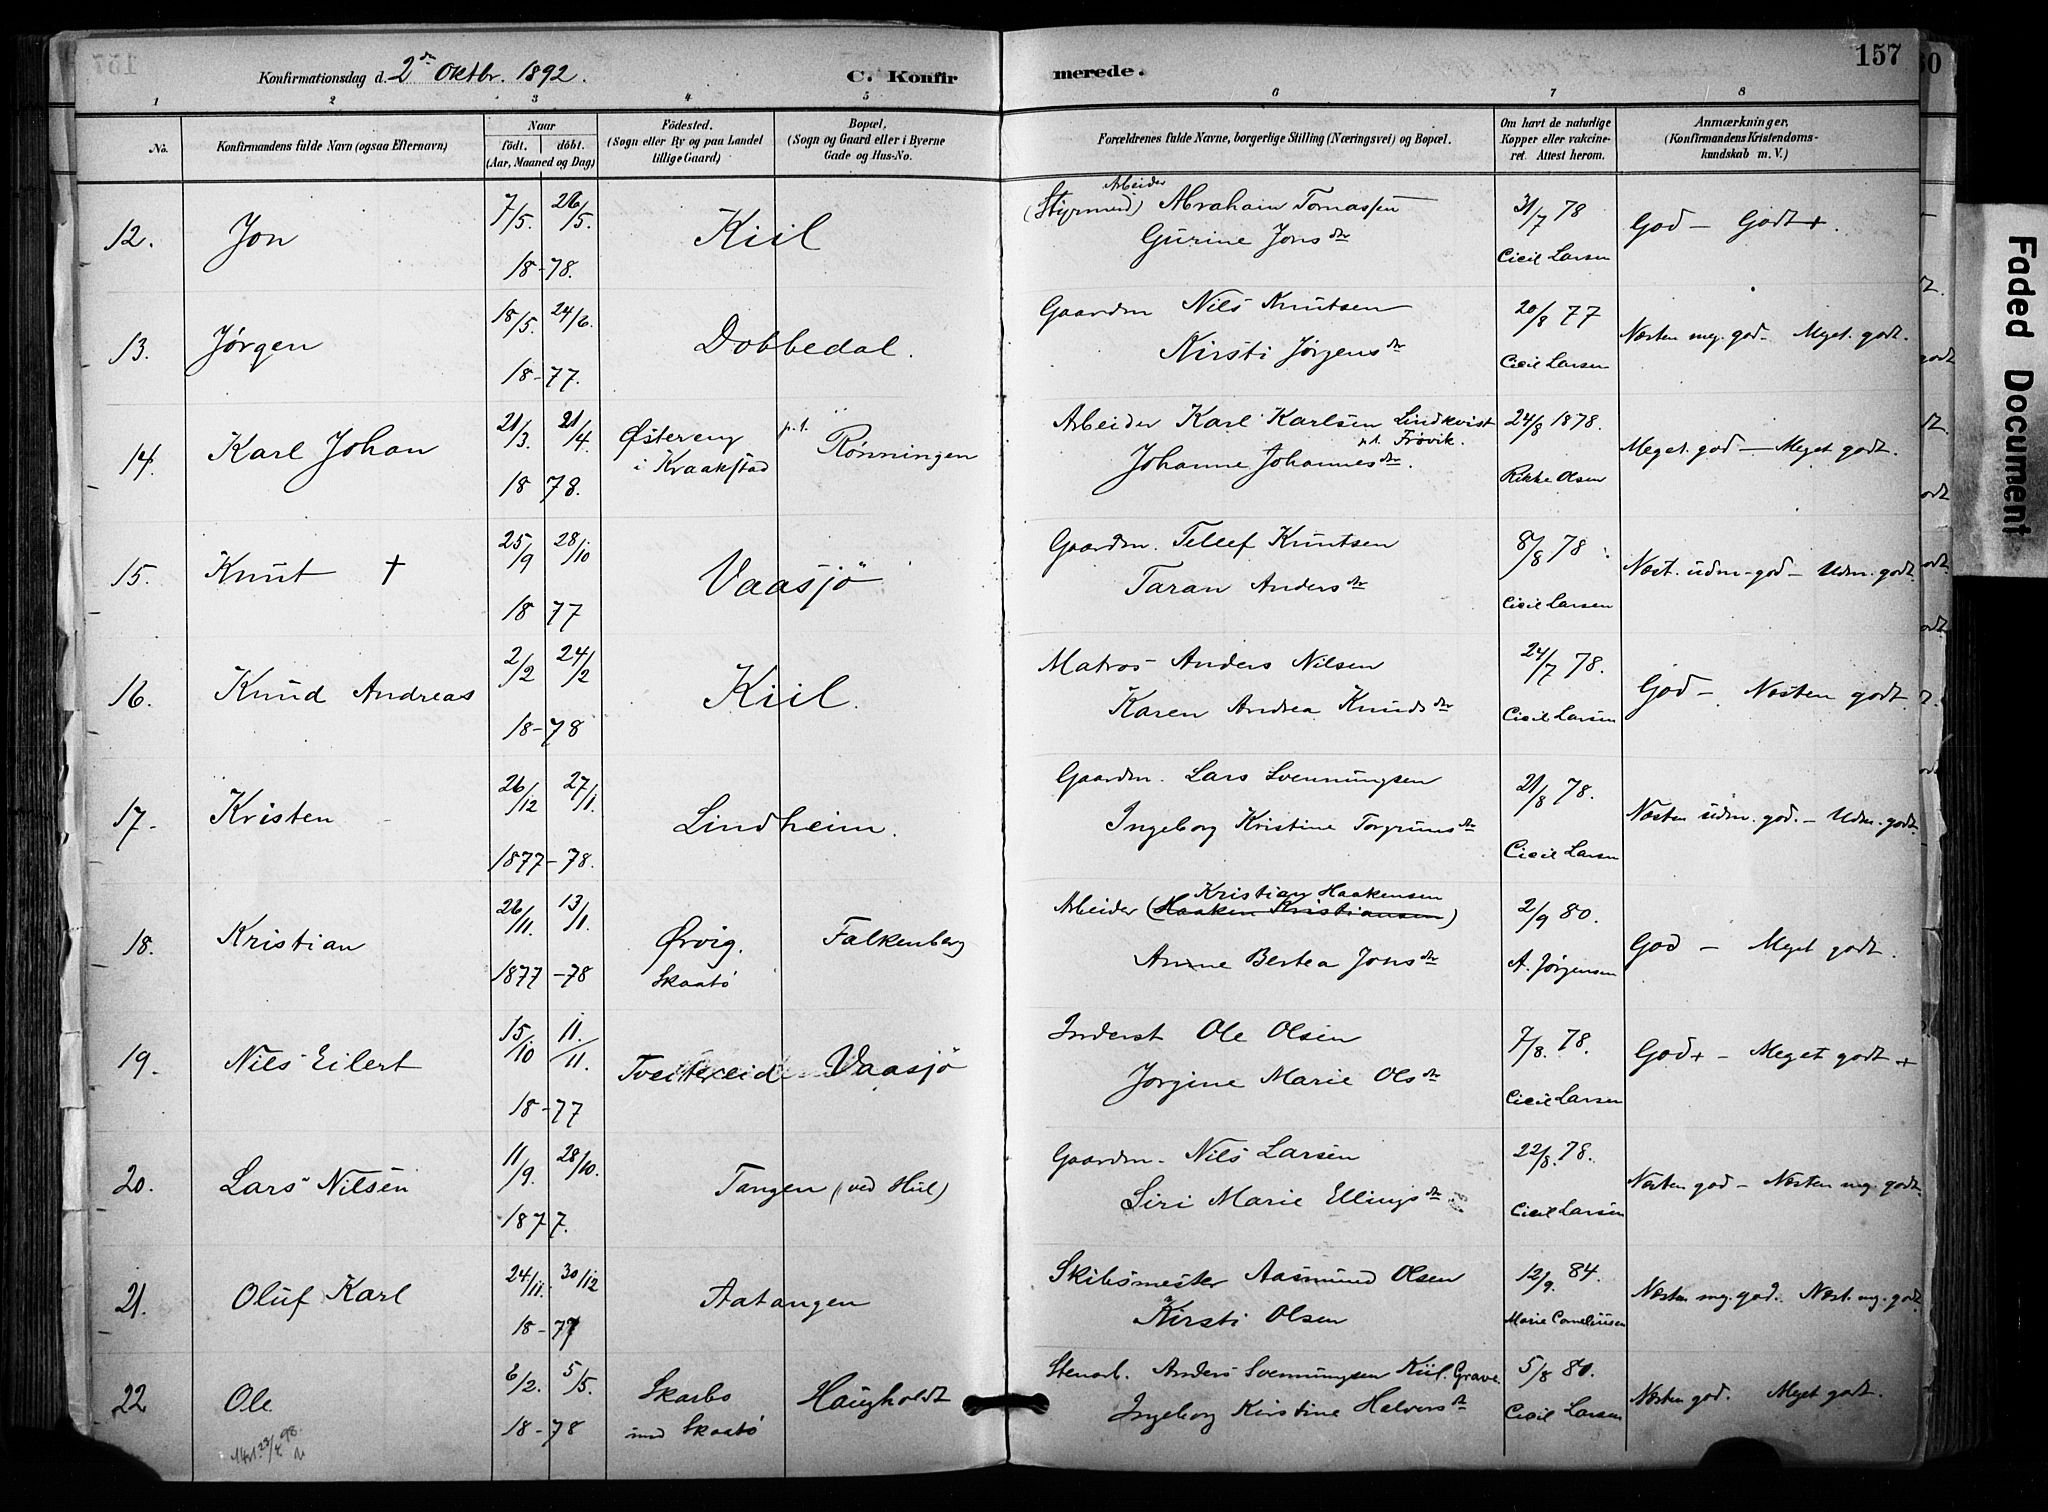 Konfirmationsdag d. 2den Oktbr. 1892.
C. Konfir
merede.
157
1 2 3 4 5 6 7 8
No.
Konfirmandens fulde Navn (ogsaa Efternavn)
Naar
födt. döbt.
(Aar, Maaned og Dag)
Födested.
(Sogn eller By og paa Landet
tillige Gaard)
Bopæl,
(Sogn og Gaard eller i Byerne
Gade og Hus-No.
Forældrenes fulde Navne, borgerlige Stilling (Næringsvei) og Bopæl.
Om havt de naturlige
Kopper eller vakcine-
ret. Attest herom.
Anmærkninger,
(Konfirmandens Kristendoms-
kundskab m. V.)
12. Jon 7/5. 26/5. 18-78. Kiil
Arbeider
(Styrmed) Abraham Tomassen
Gurine Jonsdtr
31/7 78
Cicil Larsen
God - Godt +.
13. Jørgen 18/5. 24/6. 18-77. Dobbedal.
Gaardm Nils Knutsen
Kirsti Jørgensdtr
20/8 77
Cicil Larsen
Næsten meg. god - Meget. godt.
14. Karl Johan 21/3. 21/4. 18 78. Østereng
i Kraakstad
p.t. Rønningen
Arbeider Karl Karlsen Lindkvist
pt. Frøvik.
Johanne Johannesdtr.
24/8 1878.
Rikke Olsen
Meget. god - Meget godt.
15. Knut + 25/9 28/10 18 77 Vaasjö
Gaardm. Tellef Knutsen
Taran Andersdtr
8/8 78
Cicil Larsen
Næst. udm. god - Udm. godt.
16. Knud Andreas 2/2 24/2 18-78 Kiil.
Matros Anders Nilsen
Karen Andrea Knudsdtr
24/7 78.
Cicil Larsen
God - Næsten godt.
17. Kristen 26/12 27/1. 1877-78. Lindheim.
Gaardm. Lars Svennungsen
Ingeborg Kristine Torgrimsdtr
21/8 78.
Cicil Larsen
Næsten udm. god. - Udm. godt.
18. Kristian 26/11. 13/1. 1877-78 Ørvig.
Skaatö
Falkenberg
Kristian Haakensen
Arbeider (Haaken Kristiansen)
Anne Bertea Jonsdtr
2/9 80.
A. Jørgensen
God - Meget godt.
19. Nils Eilert 15/10 11./11. 18-77 Tveitereid Vaasjö
Inderst Ole Olsen
Jorgine Marie Olsdtr
7/8. 78.
Cicil Larsen
God + - Meget godt +
20. Lars Nilsen 11/9. 28/10. 1877. Tangen (ved Hul)
Gaardm. Nils Larsen
Siri Marie Ellingsdtr
22/8. 78.
Cicil Larsen
Næsten god - Næsten mg. godt.
21. Oluf Karl 24/11. 30/12 18-77 Aatangen
Skibsmester Aasmund Olsen
Kirsti Olsen
12/9. 84.
Marie Corneliusen
Næsten mg. god. Næst. mg. godt.
22 Ole 6/2. 5/5. 18-78 Skarbo
ind Skaatö
Haugholdt
Stenarb. Anders Svennungsen Kiil. Grave
Ingeborg Kirstine Halvorsdtr
5/8 80.
Cicil Larsen
Næsten god. Meget godt.
Faded Document